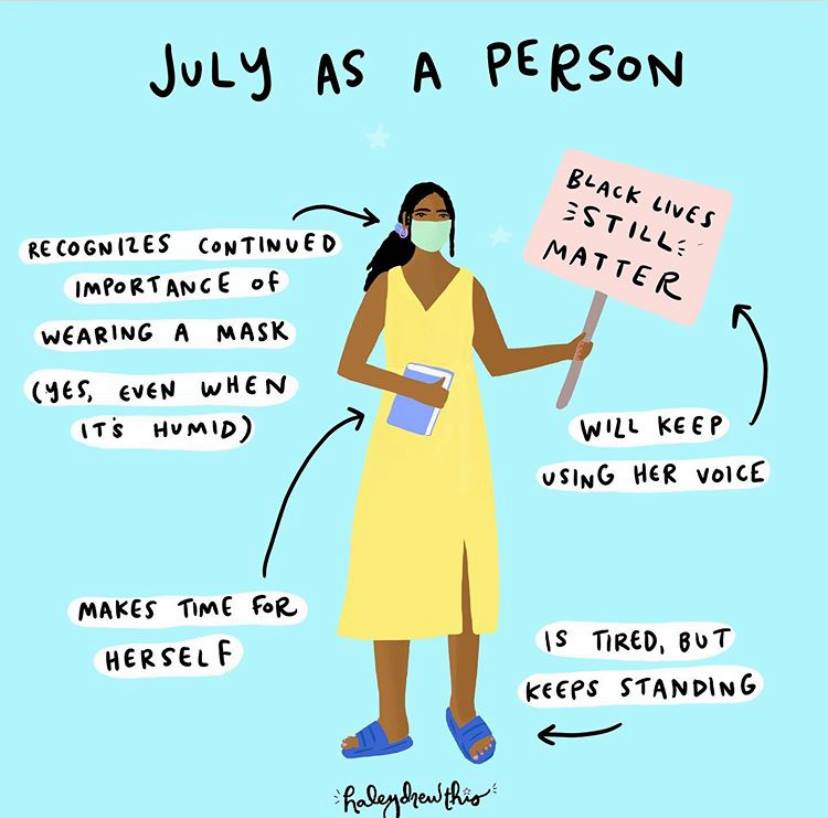 JULY AS A PERSON
RECOGNIZES CONTINUED
IMPORTANCE OF
WEARING A MASK
(YES, EVEN WHEN
IT'S HUMID)
BLACK LIVES
STILL
MATTER
WILL KEEP
USING HER VOICE
MAKES TIME FOR
HERSELF
IS TIRED, BUT
KEEPS STANDING
haleydrewthis